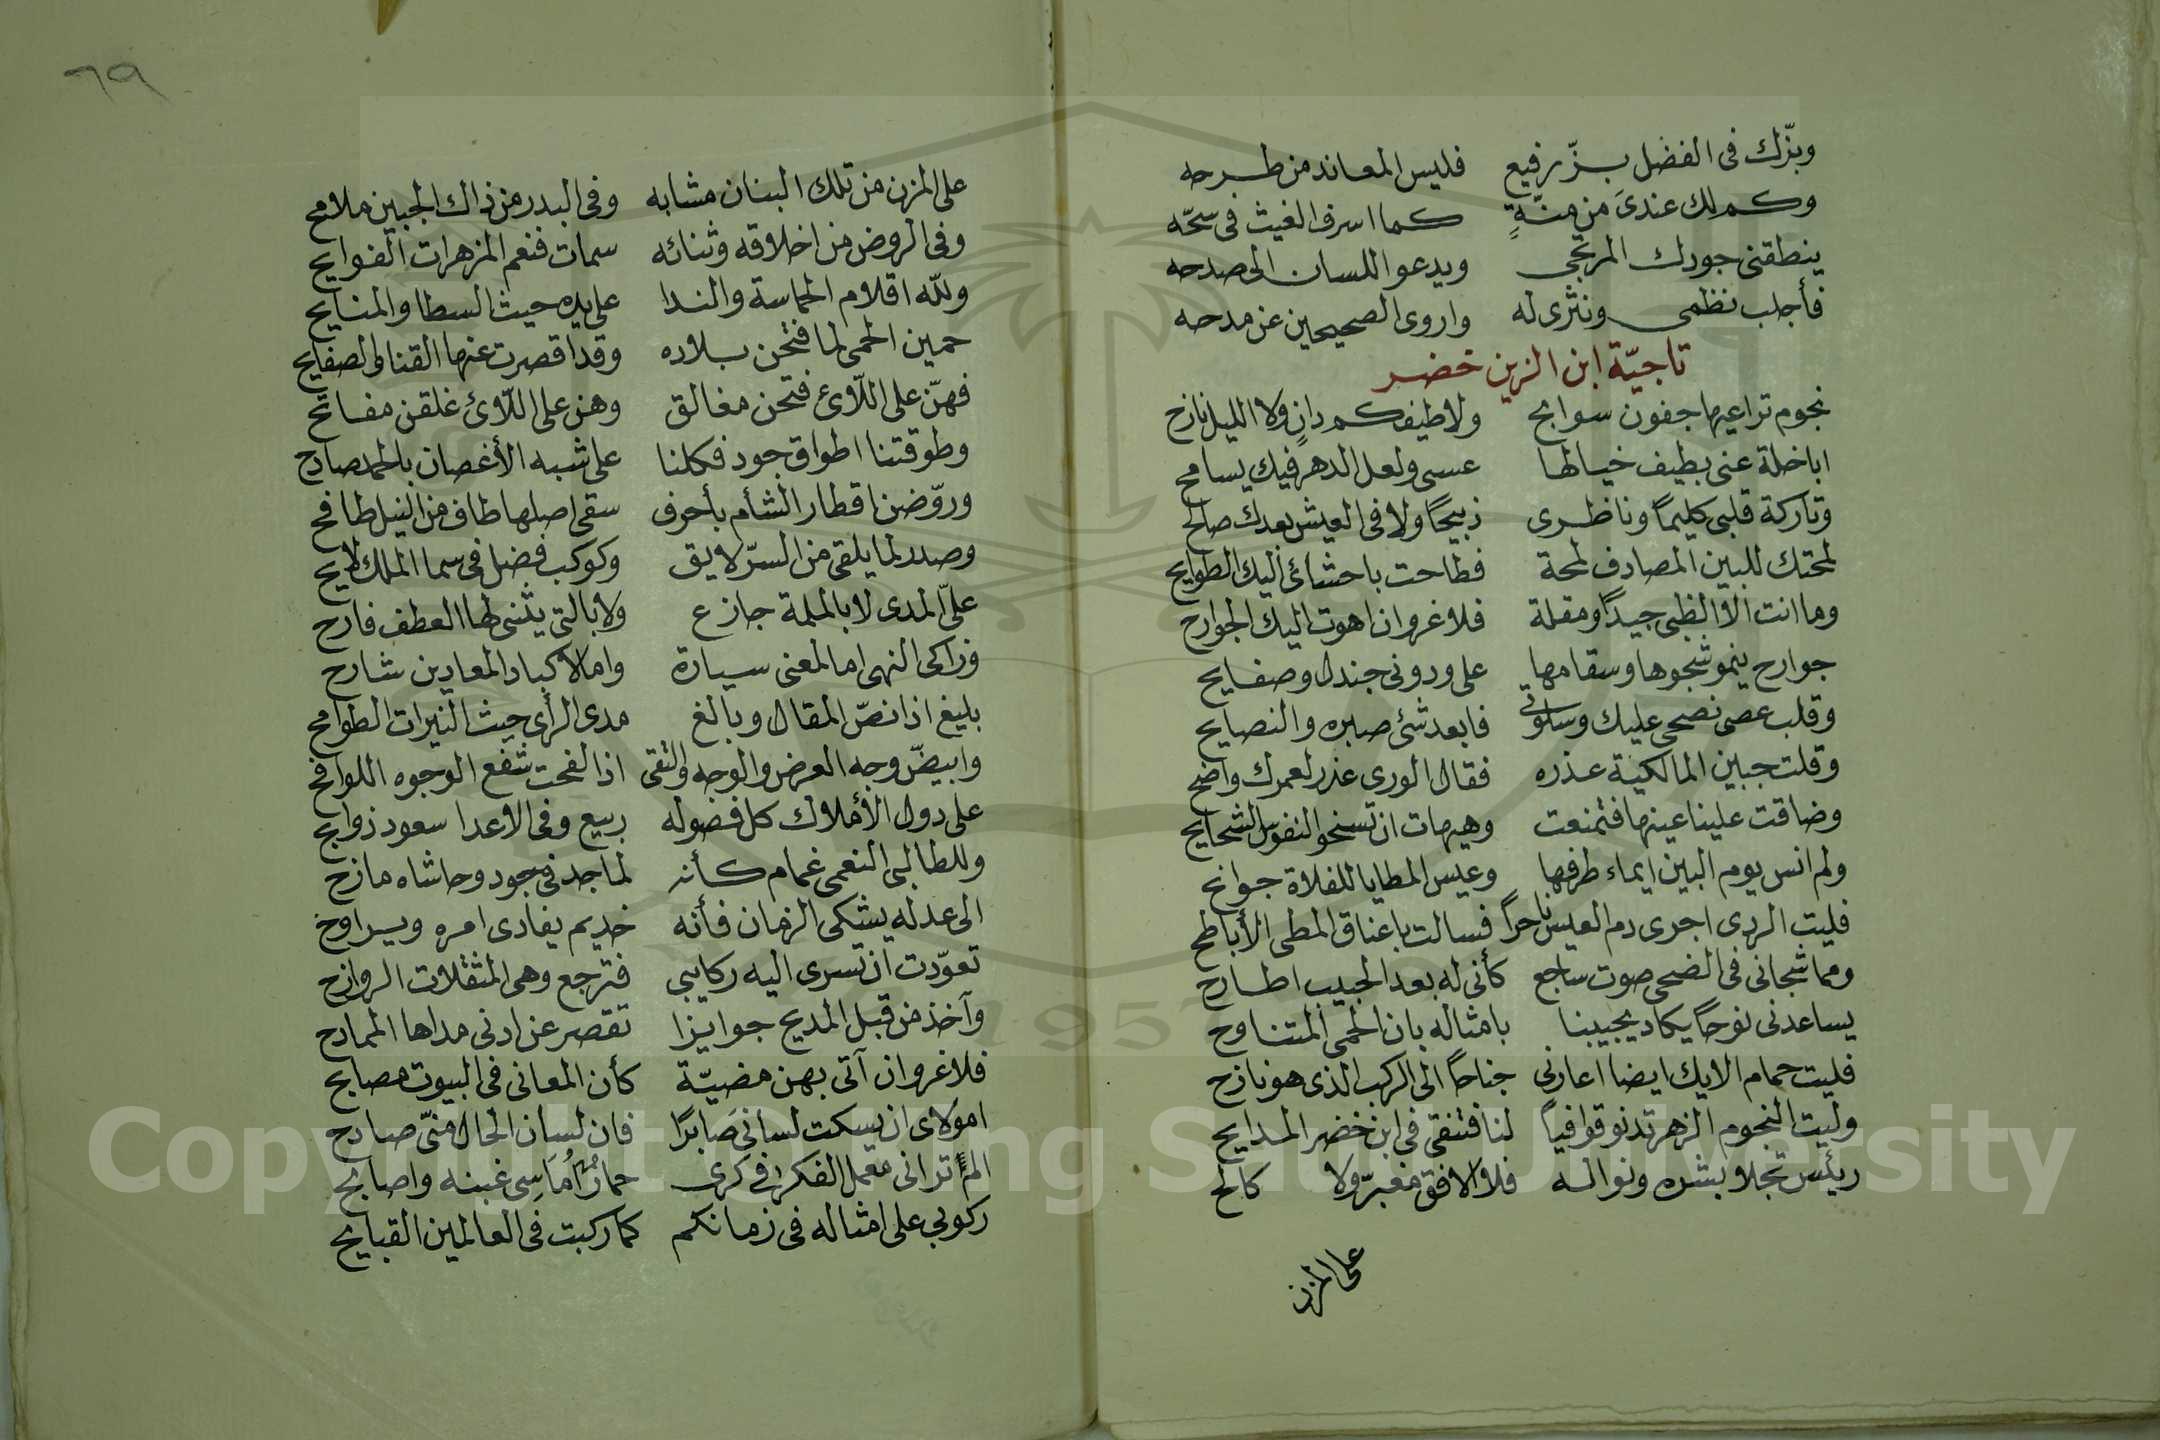 وبزّك فى الفضل بزّ رفيع فليس المعاند من طرحه
وكم لك عندى من منّةٍ كما اسرف الغيث فى سحّه
ينطقنى جودك المرتجى ويدعو اللسان الى صدحه
فأجلب نظمى ونثرى له واروى الصحيحين عن مدحه
تاجيّة ابن الزين خضر
نجوم تراعيها جفون سوابح ولا طيفكم دانٍ ولا الليل نازح
اباخلة عنى بطيف خيالها عسى ولعل الدهر فيك يسامح
وتاركة قلبى كليمًا وناظرى ذبيحًا ولا فى العيش بعدك صالح
لمحتك للبين المصادف لمحة فطاحت باحشائى اليك الطوايح
وما انت الا الظبى جيدًا ومقلة فلا غرو ان اهوت اليك الجوارح
جوارح ينمو شجوها وسقامها على ودونى جندل وصفايح
وقلب عصى نصحى عليك وسلوتى فابعد شئ صبره والنصايح
وقلت جبين المالكية عذره فقال الورى عذر لعمرك واضح
وضاقت علينا عينها فتمنعت وهيهات ان تسخو النفوس الشحايح
ولم انس يوم البين ايماء طرفها وعيس المطايا للفلاة جوانح
فليت الردى اجرى دم العيس ناحراً فسالت باعناق المطى الأباطح
ومما شجانى فى الضحى صوت ساجع كأنى له بعد الحبيب اطارح
يساعدنى نوحاً يكاد يجيبنا بامثاله بان الحمى المتناوح
فليت حمام الايك ايضا اعارنى جناحاً الى الركب الذى هو نازح
وليت النجوم الزهر تدنو قوافياً لنا فتنقى فى ابن خضر المدايح
رئيس تجلا بشره ونواله فلا الافق مغبرّ ولا كالح
على المزن
٦٩
على المزن من تلك البنان مشابه وفى البدر من ذاك الجبين ملامح
وفى الروض من اخلاقه وثنائه سمات فنعم المزهرات الفوايح
ولله اقلام الحماسة والندا على يده حيث السطا والمنايح
حمين الحمى لما فتحن بلاده وقد اقصرت عنها القنا والصفايح
فهنّ على اللأوى فتحن مغالق وهن على اللأوى غلقن مفاتح
وطوقتنا اطواق جود فكلنا على شبه الأغصان بالحمد صادح
وروّضن اقطار الشأم بأحرف سقى اصلها طاف من النيل طافح
وصدر لما يلقى من السرّ لايق وكوكب فضل فى سما الملك لايح
علىّ المدى لا بالملمة جازع ولا بالتى يثنى لها العطف فارح
وزاكى النهى اما لمعنى سيارة واما لاكباد المعادين شارح
بليغ اذا نصّ المقال وبالغ مدى الرأى حيث النيرات الطوامح
وابيضّ وجه العرض والوجه والتقى اذا لفحت سفع الوجوه اللوافح
على دول الأملاك كل فصوله ربيع وفى الاعدا سعود ذوابح
وللطالبى النعمى غمام كأنه لماجد فى جود وحاشاه مازح
الى عدله يشكى الزمان فأنه خديم يغادى امره ويراوح
تعوّدت ان تسرى اليه ركايبى فترجع وهى المثقلات الروازح
وآخذ من قبل المديح جوايزا تقصر عن ادنى مداها الممادح
فلا غرو ان آتى بهن مضيّة كأن المعانى فى البيوت مصابح
امولاى ان يسكت لسانى صَابرًا فان لسان الحال منّى صادح
الم ترانى معمل الفكر فى كرى حمارٌ اُمَاسِى غبنه واصابح
ركوبى على امثاله فى زمانكم كما ركبت فى العالمين القبايح